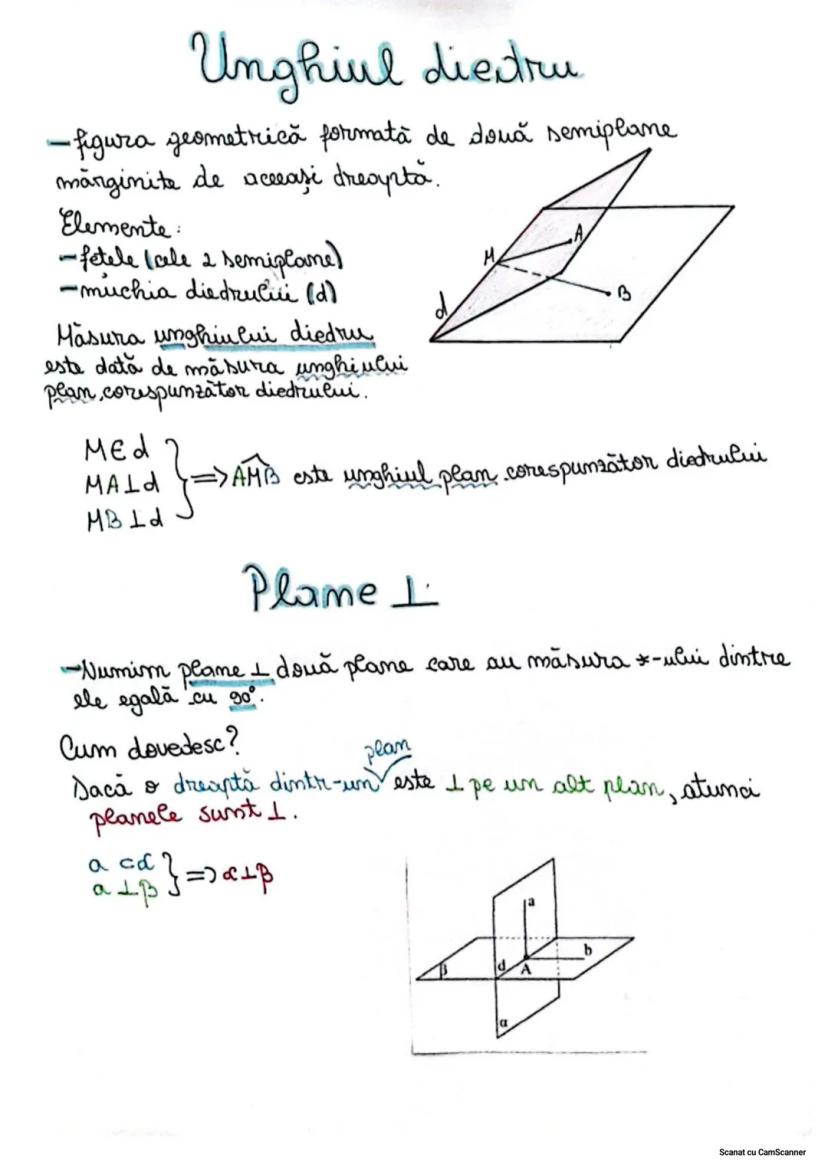 Unghiul diedru
- figura geometrică formată de două semiplane
mărginite de aceeași dreaptă.
Elemente:
- fețele (cele 2 semiplane)
- muchia diedrului (d)
Măsura unghiului diedru
este dată de măsura unghiului
plan corespunzător diedrului.
A
M
B
d
M∈d
MA⊥d } => AMB este unghiul plan corespunzător diedrului
MB⊥d
Plane ⊥
- Numim plane ⊥ două plane care au măsura ∢-ului dintre
ele egală cu 90°.
Cum dovedesc?
plan
Dacă o dreaptă dintr-un este ⊥ pe un alt plan, atunci
planele sunt ⊥.
a ⊂ α
a ⊥ β } => α ⊥ β
a
b
β
d
A
α
Scanat cu CamScanner